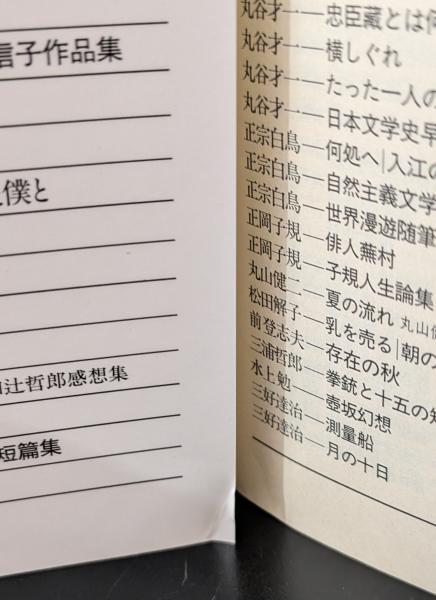 信子作品集
僕と
辻哲郎感想集
短篇集
丸谷才一──忠臣藏とは何
丸谷才一──横しぐれ
丸谷才一──たった一人の
丸谷才一──日本文学史早
正宗白鳥──何処へ|入江の
正宗白鳥──自然主義文学
正宗白鳥──世界漫遊随筆
正岡子規──俳人蕪村
正岡子規──子規人生論集
丸山健二──夏の流れ 丸山
松田解子──乳を売る|朝の
前登志夫──存在の秋
三浦哲郎──拳銃と十五の短
水上勉──壺坂幻想
三好達治──測量船
三好達治──月の十日